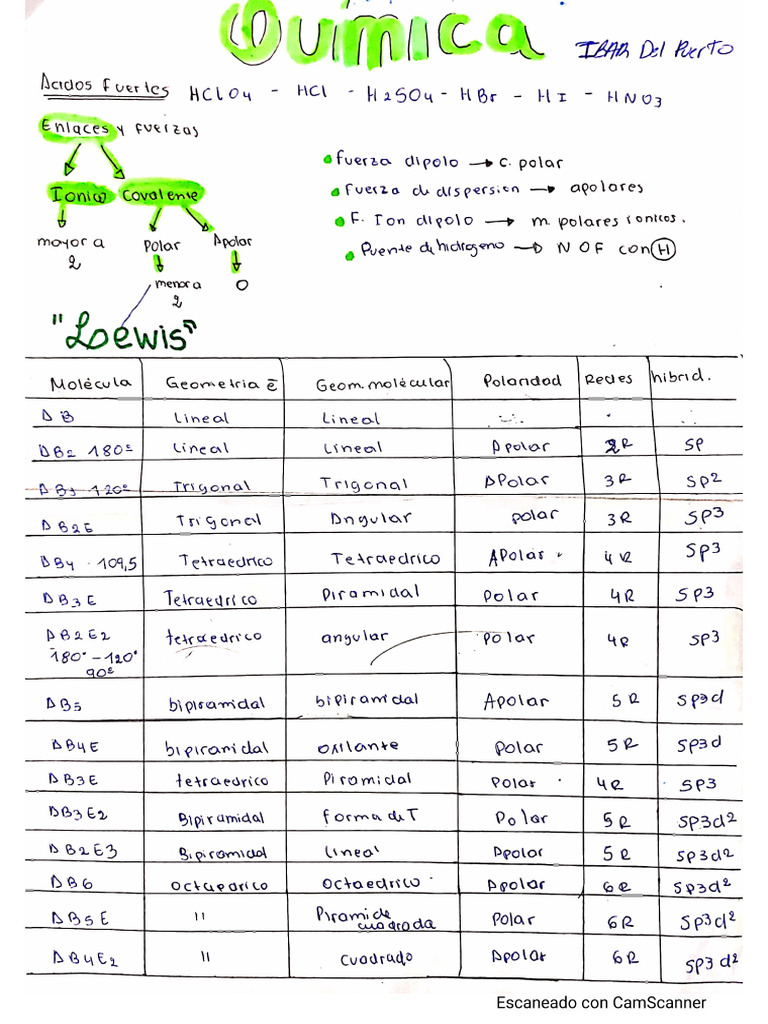 Química IBAR Del Puerto
Acidos fuertes HClO4 - HCl - H2SO4 - HBr - HI - HNO3
Enlaces y fuerzas
Ionico Covalente
mayor a 2
Polar Apolar
menor a 2
0
fuerza dipolo → c. polar
fuerza de dispersion → apolares
F. Ion dipolo → m. polares ionicos.
Puente de hidrogeno → N O F con H
"Loewis"
Molécula Geometria ē Geom. molécular Polaridad Redes hibrid.
AB Lineal Lineal
AB2 180° Lineal Lineal Apolar 2R sp
AB3 120° Trigonal Trigonal APolar 3R sp2
AB2E Trigonal Angular polar 3R sp3
AB4 109,5 Tetraedrico Tetraedrico APolar 4R sp3
AB3E Tetraedrico Piramidal Polar 4R sp3
AB2E2 tetraedrico angular Polar 4R sp3
180° - 120°
90°
AB5 bipiramidal bipiramidal Apolar 5R sp3d
AB4E bipiramidal oxilante Polar 5R sp3d
AB3E tetraedrico Piramidal Polar 4R sp3
AB3E2 Bipiramidal forma de T Polar 5R sp3d2
AB2E3 Bipiramidal lineal Apolar 5R sp3d2
AB6 octaedrico octaedrico Apolar 6R sp3d2
AB5E " Piramide cuadrada Polar 6R sp3d2
AB4E2 " cuadrado Apolar 6R sp3d2
Escaneado con CamScanner